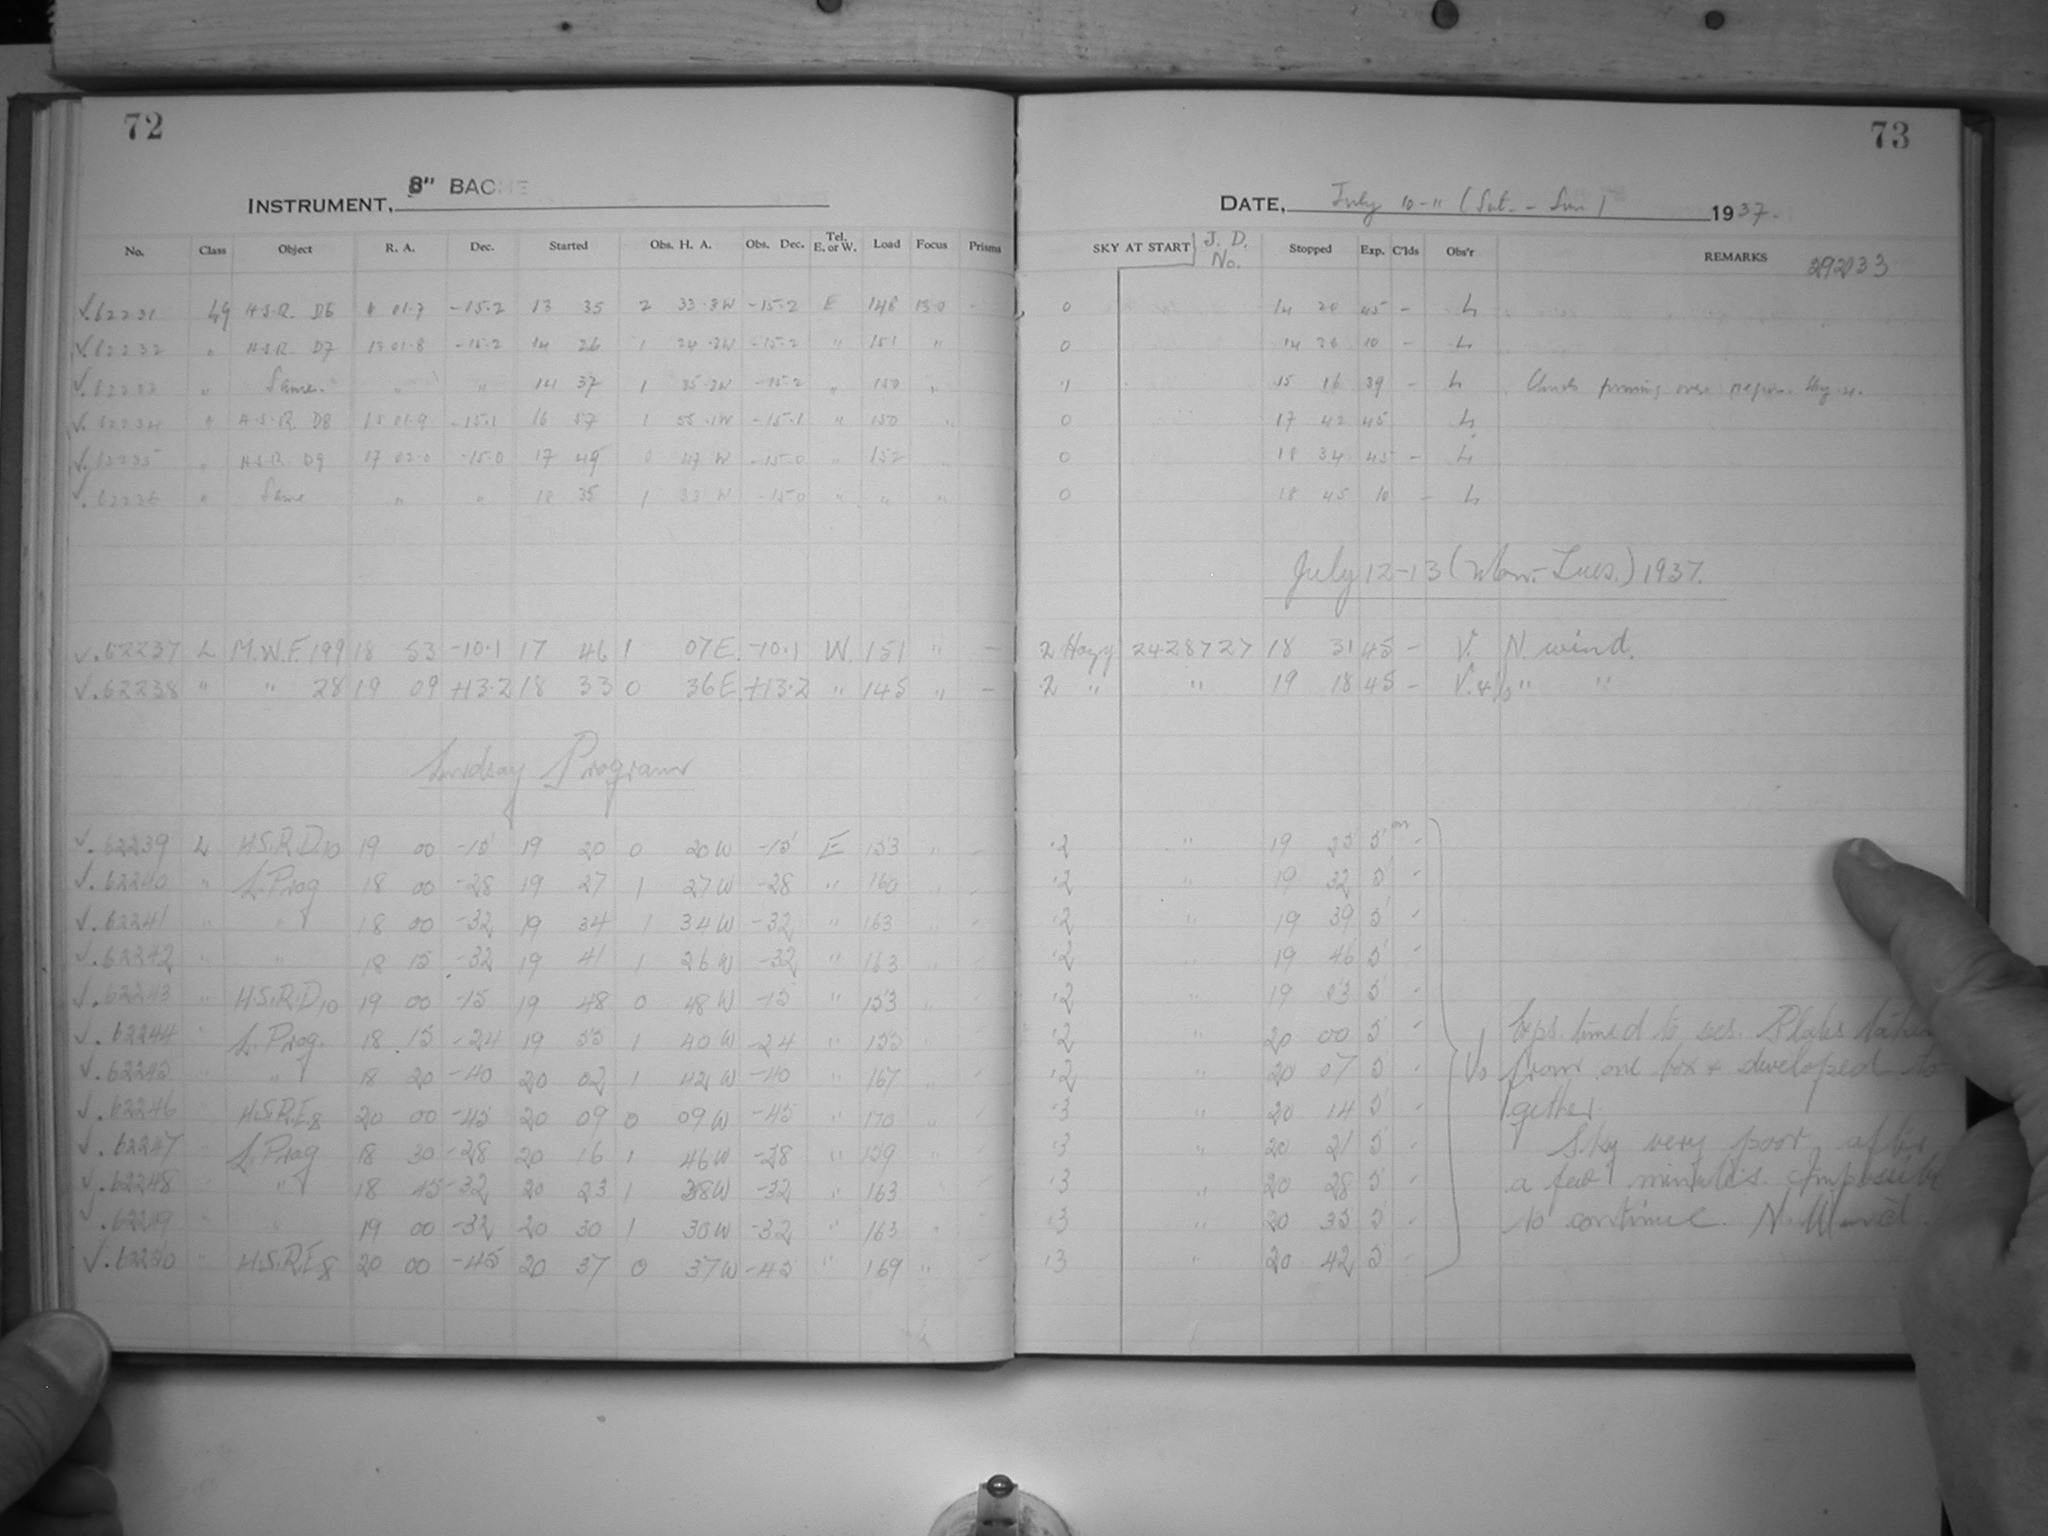 72
INSTRUMENT, 8" BACHE
No. Class Object R. A. Dec. Started Obs. H. A. Obs. Dec. Tel. E. or W. Load Focus Prisms
√.62231 H.S.R. D6 01.7 -15.2 13 35 2 33.8W -15.2 E 148 13.0 -
√.62232 " H.S.R. D7 13 01.8 -15.2 14 26 1 24.2W -15.2 " 151 "
√.62233 " Same. " " 14 37 1 35.2W -15.2 " 150 "
√.62234 " H.S.R. D8 15 01.9 -15.1 16 57 1 55.1W -15.1 " 150 "
√.62235 " H.S.R. D9 17 02.0 -15.0 17 49 0 47 W -15.0 " 152 "
√.62236 " Same " " 18 35 1 33 W -15.0 " " "
√.62237 L M.W.F. 199 18 53 -10.1 17 46 1 07 E. -10.1 W. 151 " -
√.62238 " " 28 19 09 +13.2 18 33 0 36 E. +13.2 " 145 " -
Lindsay Program
√.62239 L H.S.R.D10 19 00 -15 19 20 0 20W -15 E 153 " -
√.62240 " L. Prog 18 00 -28 19 27 1 27W -28 " 160 " -
√.62241 " " 18 00 -32 19 34 1 34W -32 " 163 " -
√.62242 " " 18 15 -32 19 41 1 26W -32 " 163 " -
√.62243 " H.S.R.D10 19 00 -15 19 48 0 48W -15 " 153 " -
√.62244 " L. Prog. 18 15 -24 19 55 1 40W -24 " 155 " -
√.62245 " " 18 20 -40 20 02 1 42W -40 " 167 " -
√.62246 " H.S.R.E8 20 00 -45 20 09 0 09W -45 " 170 " -
√.62247 " L. Prog 18 30 -28 20 16 1 46W -28 " 159 " -
√.62248 " " 18 45 -32 20 23 1 38W -32 " 163 " -
√.62249 " " 19 00 -32 20 30 1 30W -32 " 163 " -
√.62250 " H.S.R.E8 20 00 -45 20 37 0 37W -45 " 169 " -
73
DATE, July 10-11 (Sat. - Sun) 1937.
SKY AT START J. D. No. Stopped Exp. C'lds Obs'r REMARKS
0 14 20 45 - L
0 14 36 10 - L
.1 15 16 39 - L Clouds forming over region.
0 17 42 45 L
0 18 34 45 - L
0 18 45 10 - L
July 12-13 (Mon.-Tues.) 1937.
2 Hazy 2428727 18 31 45 - V. N. wind.
.2 " " 19 18 45 - V. & " "
.2 " 19 25 5m -
.2 19 32 5 -
.2 " 19 39 5 -
.2 " 19 46 5 -
.2 " 19 53 5 -
.2 " 20 00 5 -
.2 " 20 07 5 -
.3 " 20 14 5 -
.3 " 20 21 5 -
.3 " 20 28 5 -
.3 " 20 35 5 -
.3 " 20 42 5 -
Exps. timed to secs. Plates taken
from one box + developed to
gether.
Sky very poor after
a few minutes impossible
to continue. N. Wind.